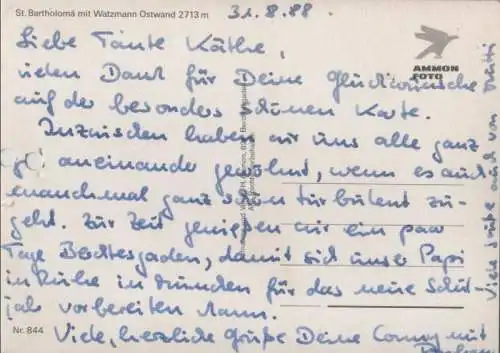 St. Bartholomä mit Watzmann Ostwand 2713 m
31.8.88.
AMMON
FOTO
Liebe Tante Käthe,
vielen Dank für Deine Glückwünsche
auf der besonders schönen Karte.
Inzwischen haben wir uns alle ganz
gut aneinander gewöhnt, wenn es auch
manchmal ganz schön turbulent zu-
geht. Zur Zeit genießen wir ein paar
Tage Berchtesgaden, damit sich unser Papi
in Ruhe in für das neue Schul-
jahr vorbereiten kann.
Viele, herzliche Grüße Deine Conny mit
Viele Grüße auch von
Nr. 844